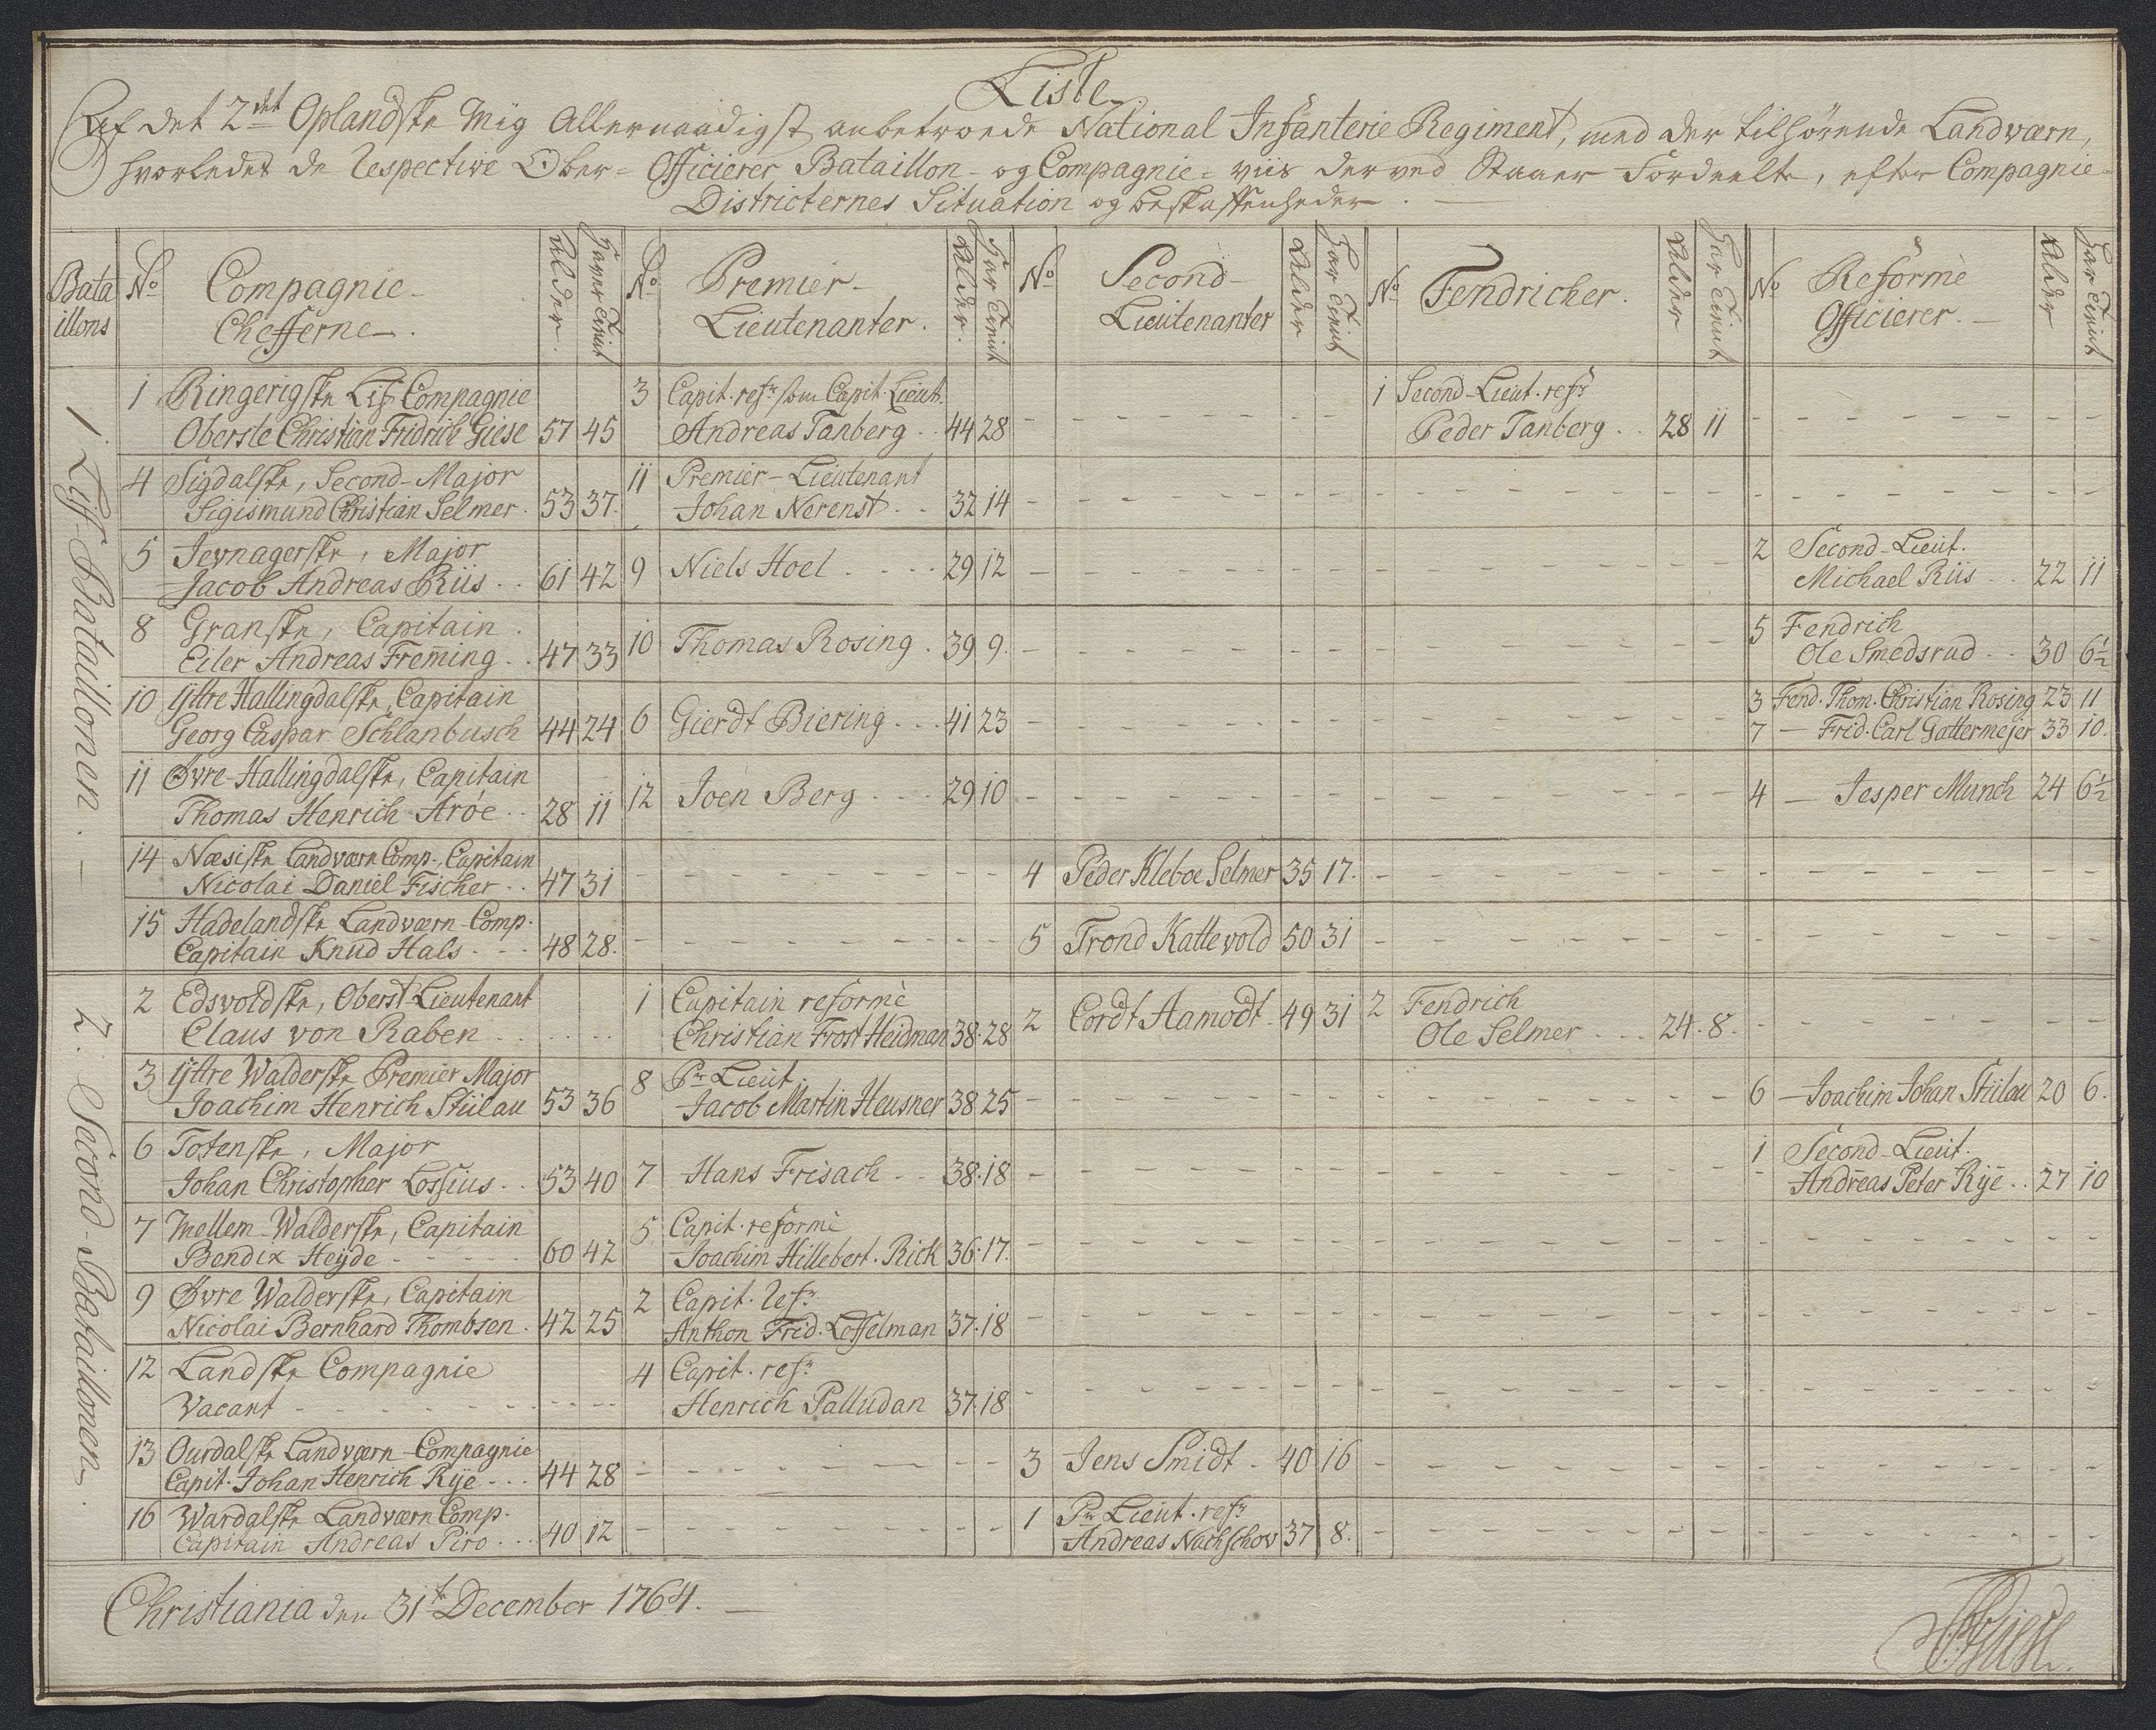 Liste
Af det 2det Oplandske Mig Allernaadigst anbetroede National Infanterie Regiment, med der tilhörende Landværn,
hvorledes de Respective Ober-Officierer Bataillon- og Compagnie-viis derved Staaer Fordeelte, efter Compagnie-
Districternes Situation og beskaffenheder.
Bata
illons
No
Compagnie-
Chefferne.
Alder.
Haver Tient
No
Premier-
Lieutenanter.
Alder.
Har Tient
No
Second-
Lieutenanter
Alder
Har Tient
No
Fendricher.
Alder
Har Tient
No
Reformè
Officierer.
Alder
Har Tient
1 Liff-Bataillonen.
1 Ringerigske Lif Compagnie
Oberste Christian Fridrich Giese 57 45
3 Capit. refr som Capit. Lieut.
Andreas Tanberg 44 28
1 Second-Lieut. refr
Peder Tanberg 28 11
4 Sigdalske, Second-Major
Sigismund Christian Selmer. 53 37.
11 Premier-Lieutenant
Johan Nerenst 32 14
5 Jevnagerske, Major
Jacob Andreas Riis 61 42
9 Niels Hoel 29 12
2 Second-Lieut.
Michael Riis 22 11
8 Granske, Capitain
Eiler Andreas Freming 47 33
10 Thomas Rosing. 39 9.
5 Fendrich
Ole Smedsrud 30 6½
10 Yttre Hallingdalske, Capitain
Georg Caspar Schlanbusch 44 24
6 Gierdt Biering 41 23
3 Fend. Thom. Christian Rosing 23 11
7 — Frid. Carl Gattermejer 33 10.
11 Øvre-Hallingdalske, Capitain
Thomas Henrich Aröe 28 11
12 Joen Berg 29 10
4 — Jesper Munch 24 6½
14 Næsiske Landværn Comp., Capitain
Nicolai Daniel Fischer 47 31
4 Peder Kleboe Selmer 35 17.
15 Hadelandske Landværn-Comp.
Capitain Knud Hals 48 28.
5 Trond Kattevold 50 31
2. Second-Bataillonen.
2 Edsvoldske, Oberst-Lieutenant
Claus von Raben
1 Capitain reformè
Christian Frost Heidman 38. 28
2 Cordt Aamodt 49 31
2 Fendrich
Ole Selmer 24. 8.
3 Yttre Walderske Premier Major
Joachim Henrich Stülau 53 36
8 Pr Lieut.
Jacob Martin Heusner 38 25
6 — Joachim Johan Stülau 20 6.
6 Totenske, Major
Johan Christopher Lossius 53 40
7 Hans Frisach 38. 18
1 Second-Lieut.
Andreas Peter Rye 27 10
7 Mellem-Walderske, Capitain
Bendix Heyde 60 42
5 Capit. reformè
Joachim Hillebert. Rick 36. 17.
9 Øvre Walderske, Capitain
Nicolai Bernhard Thombsen. 42 25
2 Capit. Refr
Anthon Frid. Loffelman 37. 18
12 Landske Compagnie
Vacant
4 Capit. refr
Henrich Palludan 37. 18
13 Ourdalske Landværn-Compagnie
Capit. Johan Henrich Rye 44 28
3 Jens Smidt 40 16
16 Wardalske Landværn Comp.
Capitain Andreas Piro 40 12
1 Pr Lieut. refr
Andreas Nachschov 37 8.
Christiania den 31te December 1764.
Giese.